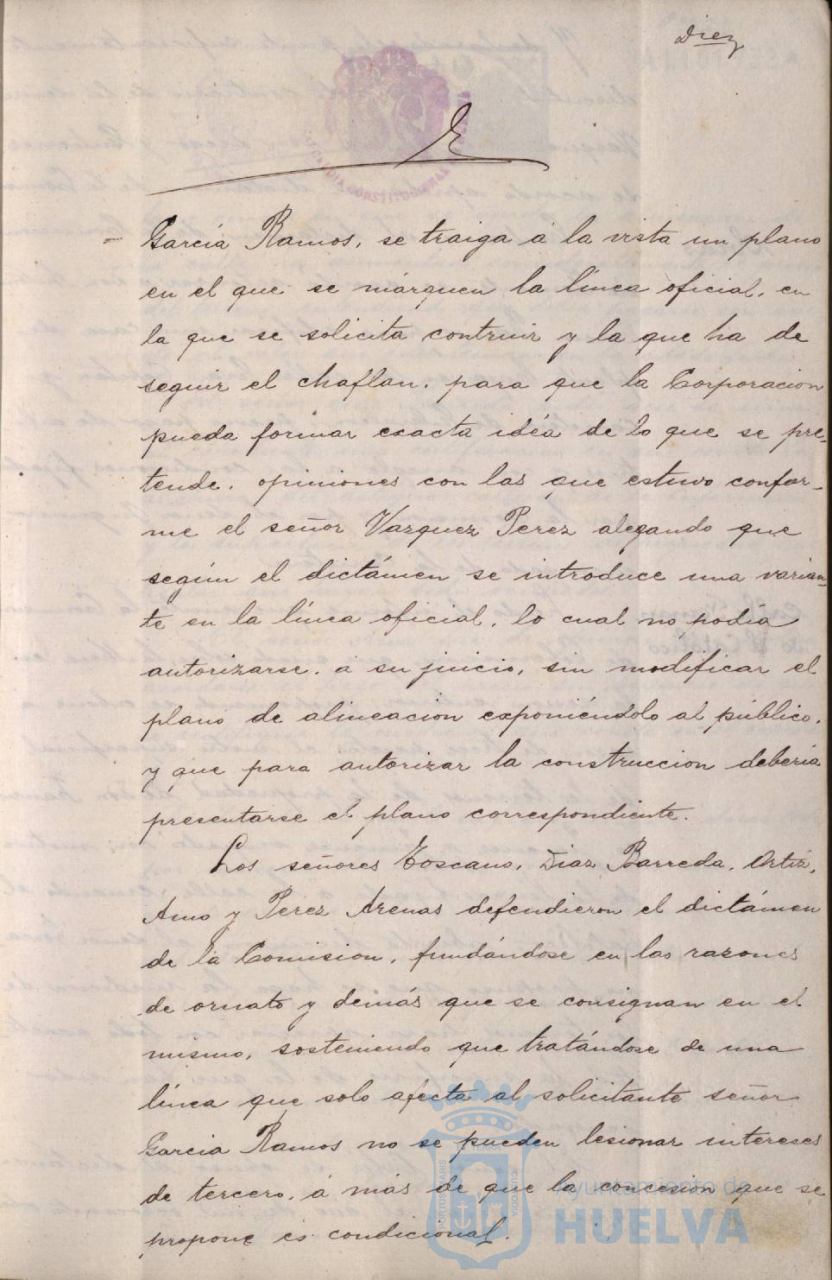 Diez
ALCALDIA CONSTITUCIONAL
García Ramos, se traiga á la vista un plano
en el que se márquen la línea oficial, en
la que se solicita contruir y la que ha de
seguir el chaflan, para que la Corporacion
pueda formar exacta idéa de lo que se pre-
tende, opiniones con las que estuvo confor-
me el señor Vazquez Perez alegando que
según el dictámen se introduce una varian-
te en la línea oficial, lo cual no podía
autorizarse, á su juicio, sin modificar el
plano de alineacion exponiéndolo al público,
y que para autorizar la construccion debería
presentarse el plano correspondiente.
Los señores Toscano, Diaz Barreda, Ortiz,
Amo y Perez Arenas defendieron el dictámen
de la Comision, fundándose en las razones
de ornato y demás que se consignan en el
mismo, sosteniendo que tratándose de una
línea que solo afecta al solicitante señor
Garcia Ramos no se pueden lesionar intereses
de tercero, á más de que la concesion que se
propone es condicional.
Ayuntamiento de
HUELVA